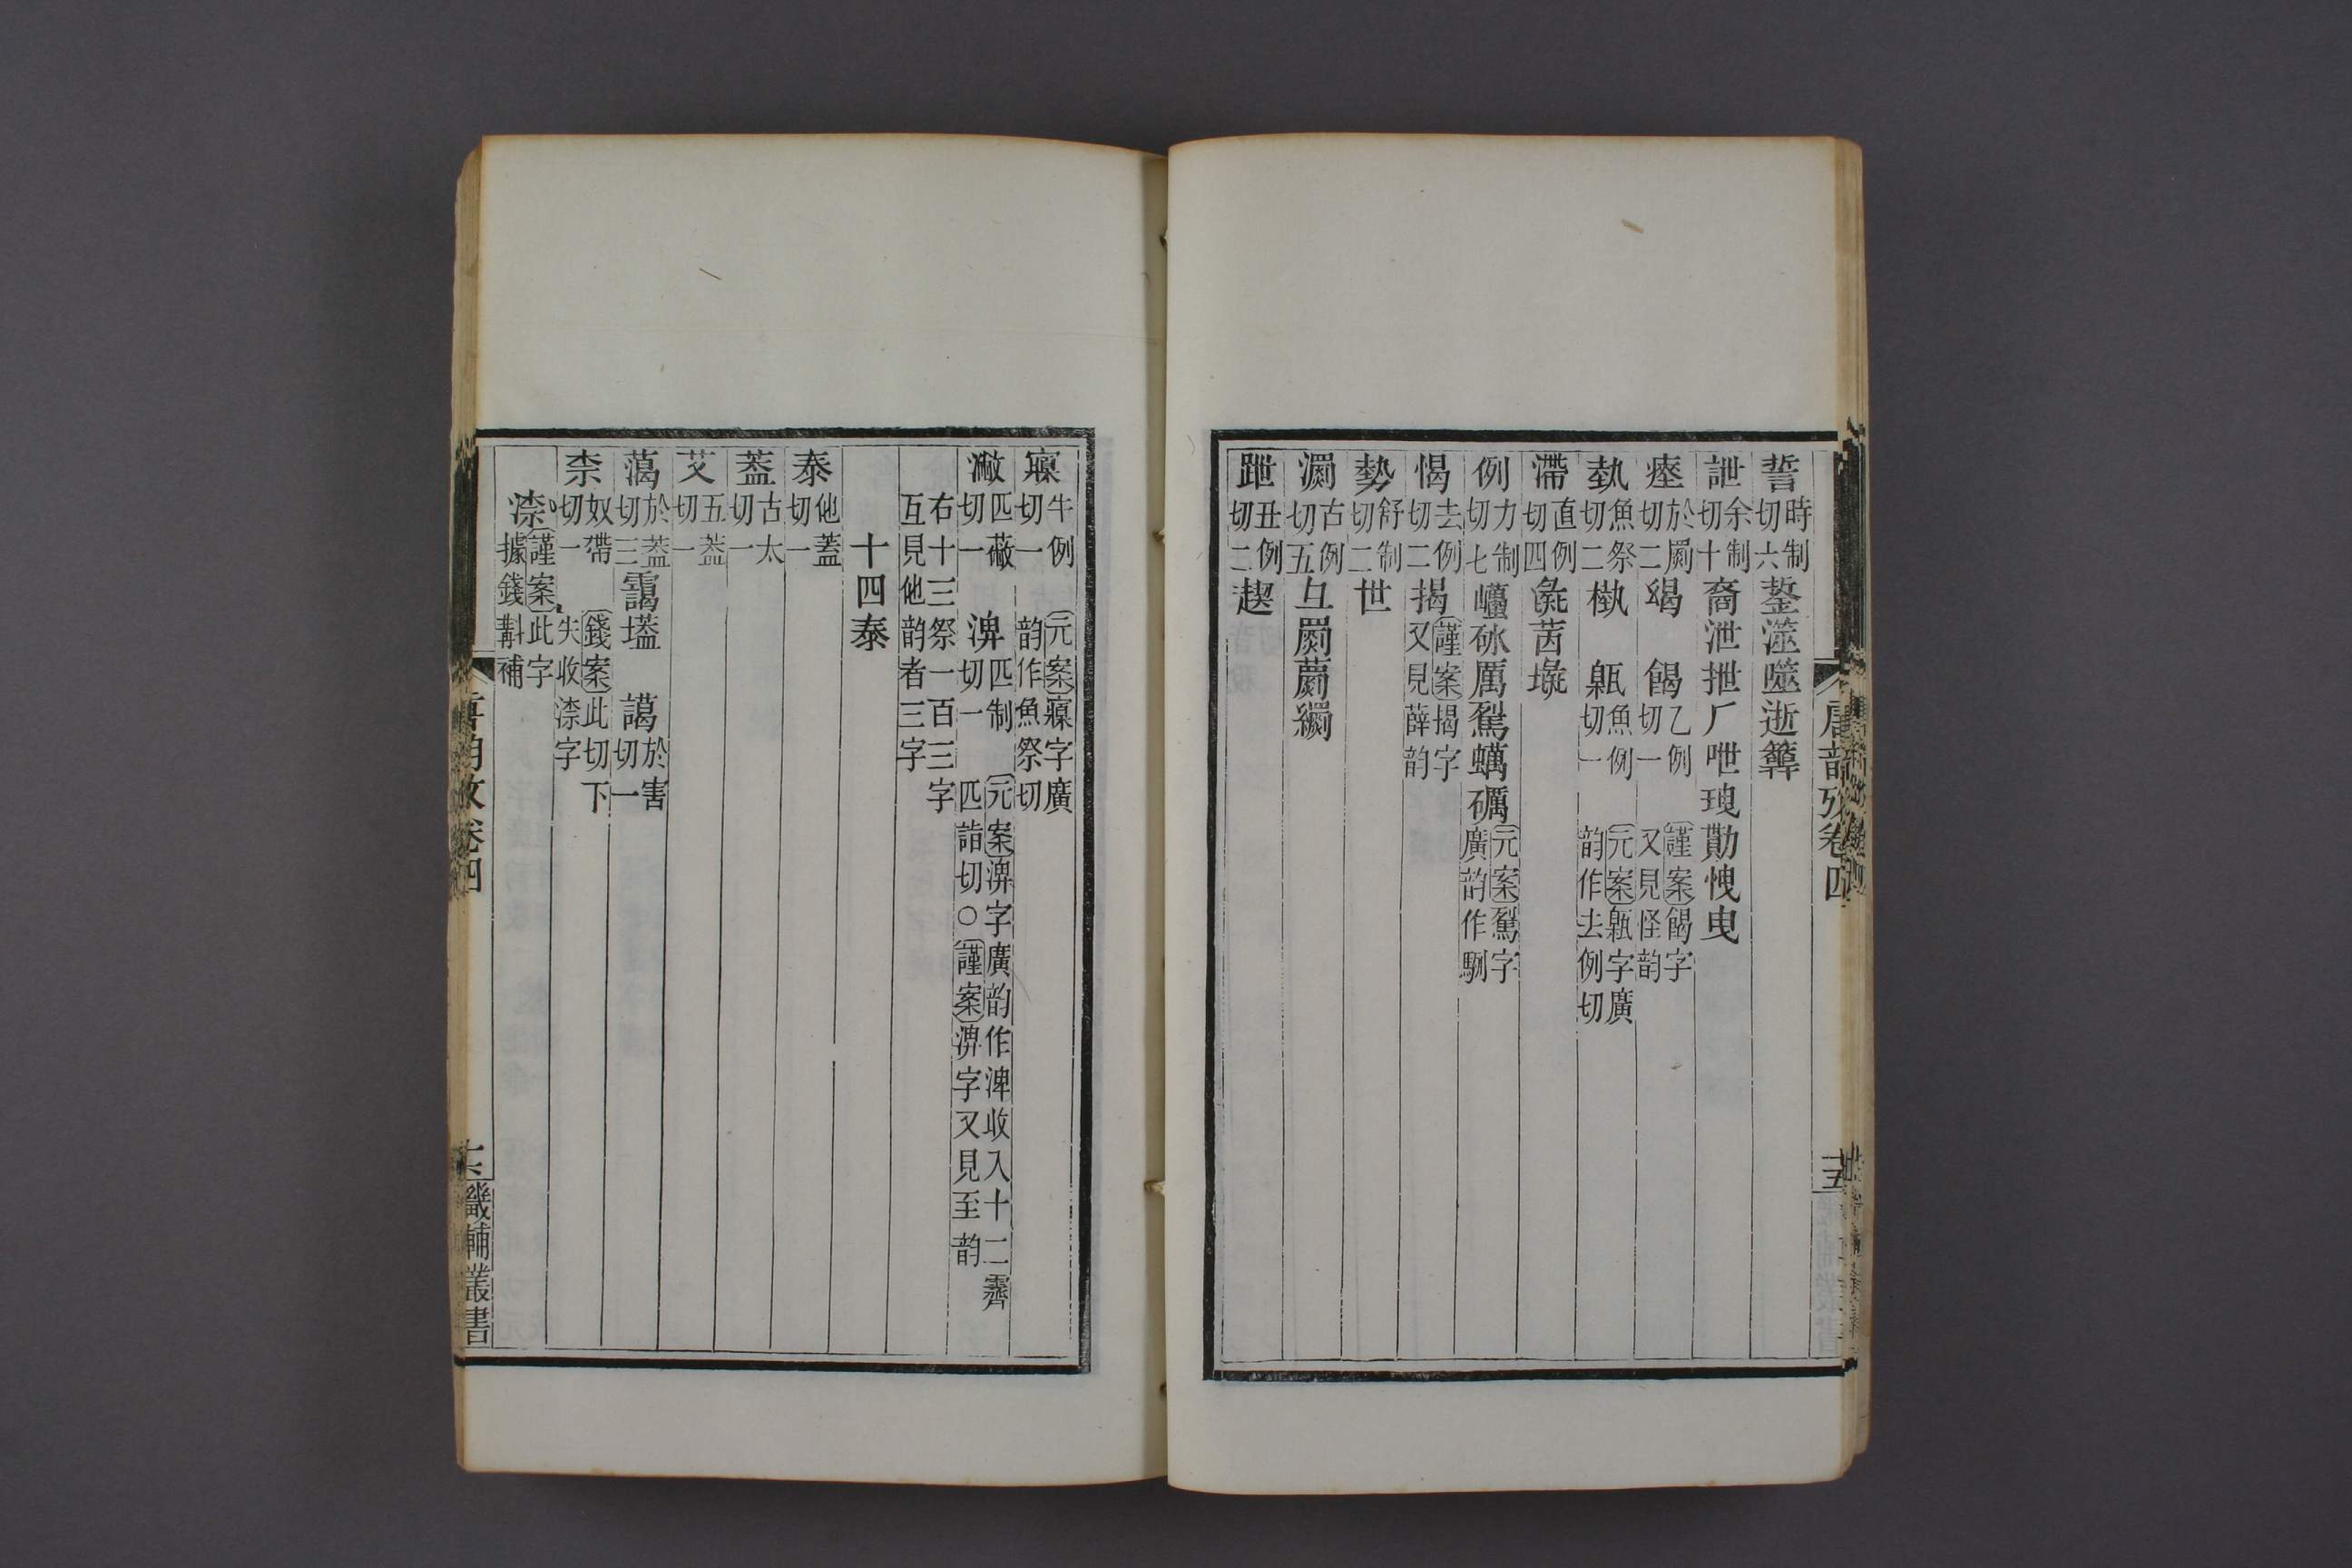 誓時制切六䥢澨噬逝簭
詍余制切十裔泄抴厂呭㻎勩愧曳
瘞於罽切二䝱 餲乙例切一謹案餲字又見怪韵
埶魚祭切二槸 甈魚例切一元案甈字廣韵作去例切
滯直例切四彘茵墬
例力制切七巁砅厲鴷蠣礪元案鴷字廣韵作䮋
愒去例切二揭謹案揭字又見薛韵
勢舒制切二世
瀱古例切五彑罽䕏繝
跇丑例切二趩
唐韵攷卷四
㝱牛例切一元案㝱字廣韵作魚祭切
潎匹蔽切一 淠匹制切一元案淠字廣韵作渒收入十二霽匹詣切○謹案淠字又見至韵
右十三祭一百三字互見他韵者三字
十四泰
泰他蓋切一
蓋古太切一
艾五蓋切一
藹於蓋切三靄壒 譪於害切一
柰奴帶切一錢案此切下失收渿字
渿謹案此字據錢斠補
唐韵攷卷四
畿輔叢書